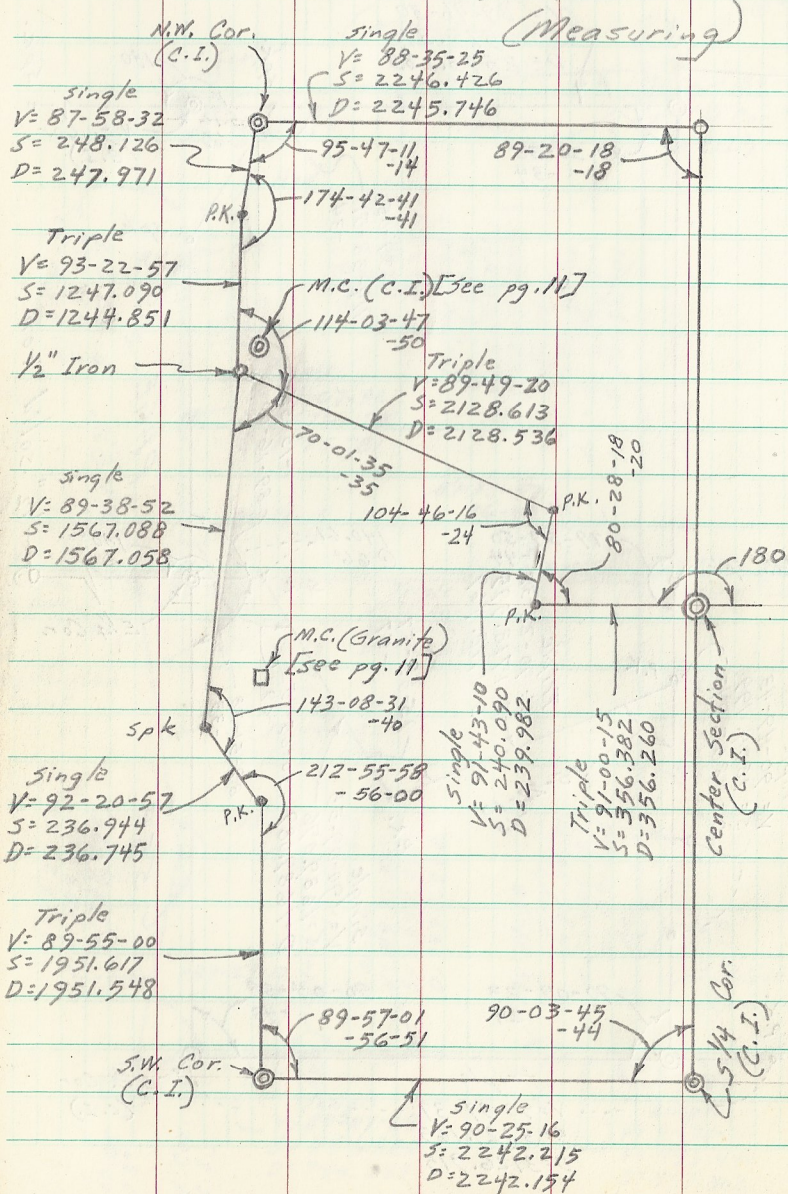 (Measuring)
N.W. Cor.
(C.I.)
single
V= 88-35-25
S= 2246.426
D= 2245.746
single
V= 87-58-32
S= 248.126
D= 247.971
95-47-11
-14
89-20-18
-18
P.K.
174-42-41
-41
Triple
V= 93-22-57
S= 1247.090
D= 1244.851
M.C. (C.I.) [See pg. 11]
114-03-47
-50
1/2" Iron
Triple
V= 89-49-20
S= 2128.613
D= 2128.536
70-01-35
-35
single
V= 89-38-52
S= 1567.088
D= 1567.058
104-46-16
-24
P.K.
80-28-18
-20
180
P.K.
M.C. (Granite)
[see pg. 11]
143-08-31
-40
Spk
Single
V= 91-43-10
S= 240.090
D= 239.982
Triple
V= 91-00-15
S= 356.382
D= 356.260
Center Section
(C.I.)
212-55-58
-56-00
Single
V= 92-20-57
S= 236.944
D= 236.745
P.K.
Triple
V= 89-55-00
S= 1951.617
D= 1951.548
89-57-01
-56-51
90-03-45
-44
S 1/4 Cor.
(C.I.)
S.W. Cor.
(C.I.)
single
V= 90-25-16
S= 2242.215
D= 2242.154